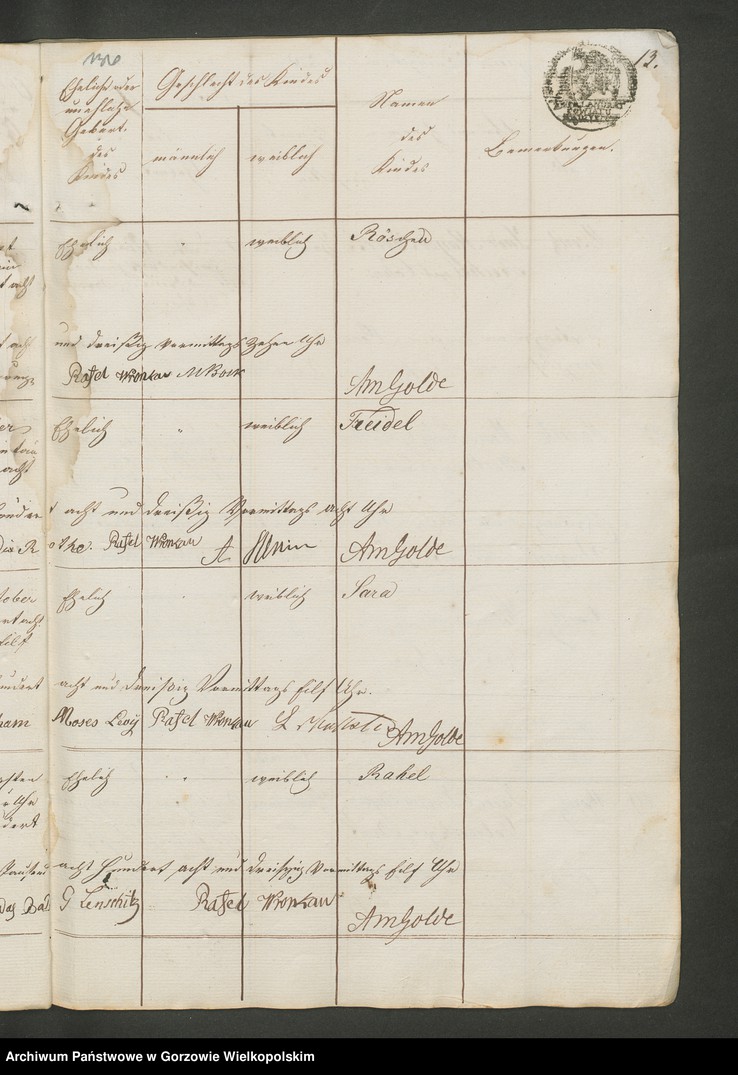 13.
Eheliche oder
uneheliche
Geburt
des
Kindes
Geschlecht des Kindes
männlich
weiblich
Namen
des
Kindes
Bemerkungen.
Ehelich
weiblich
Röschen
und dreißig Vormittags Zehn Uhr
Rafel Wronkau
AmGolde
Ehelich
weiblich
Freidel
acht und dreißig Vormittags acht Uhr
Rafel Wronkau
AmGolde
Ehelich
weiblich
Sara
acht und dreißig Vormittags Eilf Uhr.
Moses Levij Rafel Wronkau
AmGolde
Ehelich
weiblich
Rahel
acht Hundert acht und dreißig Vormittags Eilf Uhr
G Lenschitz Rafel Wronkau
AmGolde
Archiwum Państwowe w Gorzowie Wielkopolskim